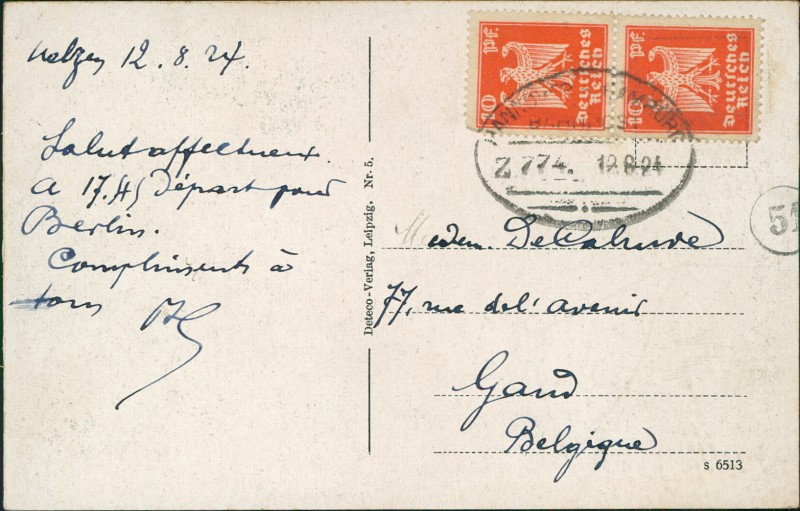 Uelzen 12.8.24.
Salut affectueux.
A 17.45 Départ pour
Berlin.
Compliments à
tous
Deteco-Verlag, Leipzig. Nr. 5.
10 Pf. Deutsches Reich
10 Pf. Deutsches Reich
HANNOVER HAMBURG
BAHNPOST
Z. 774. 12 8 24
51
Madem.
77, rue del' avenir
Gand
Belgique
s 6513